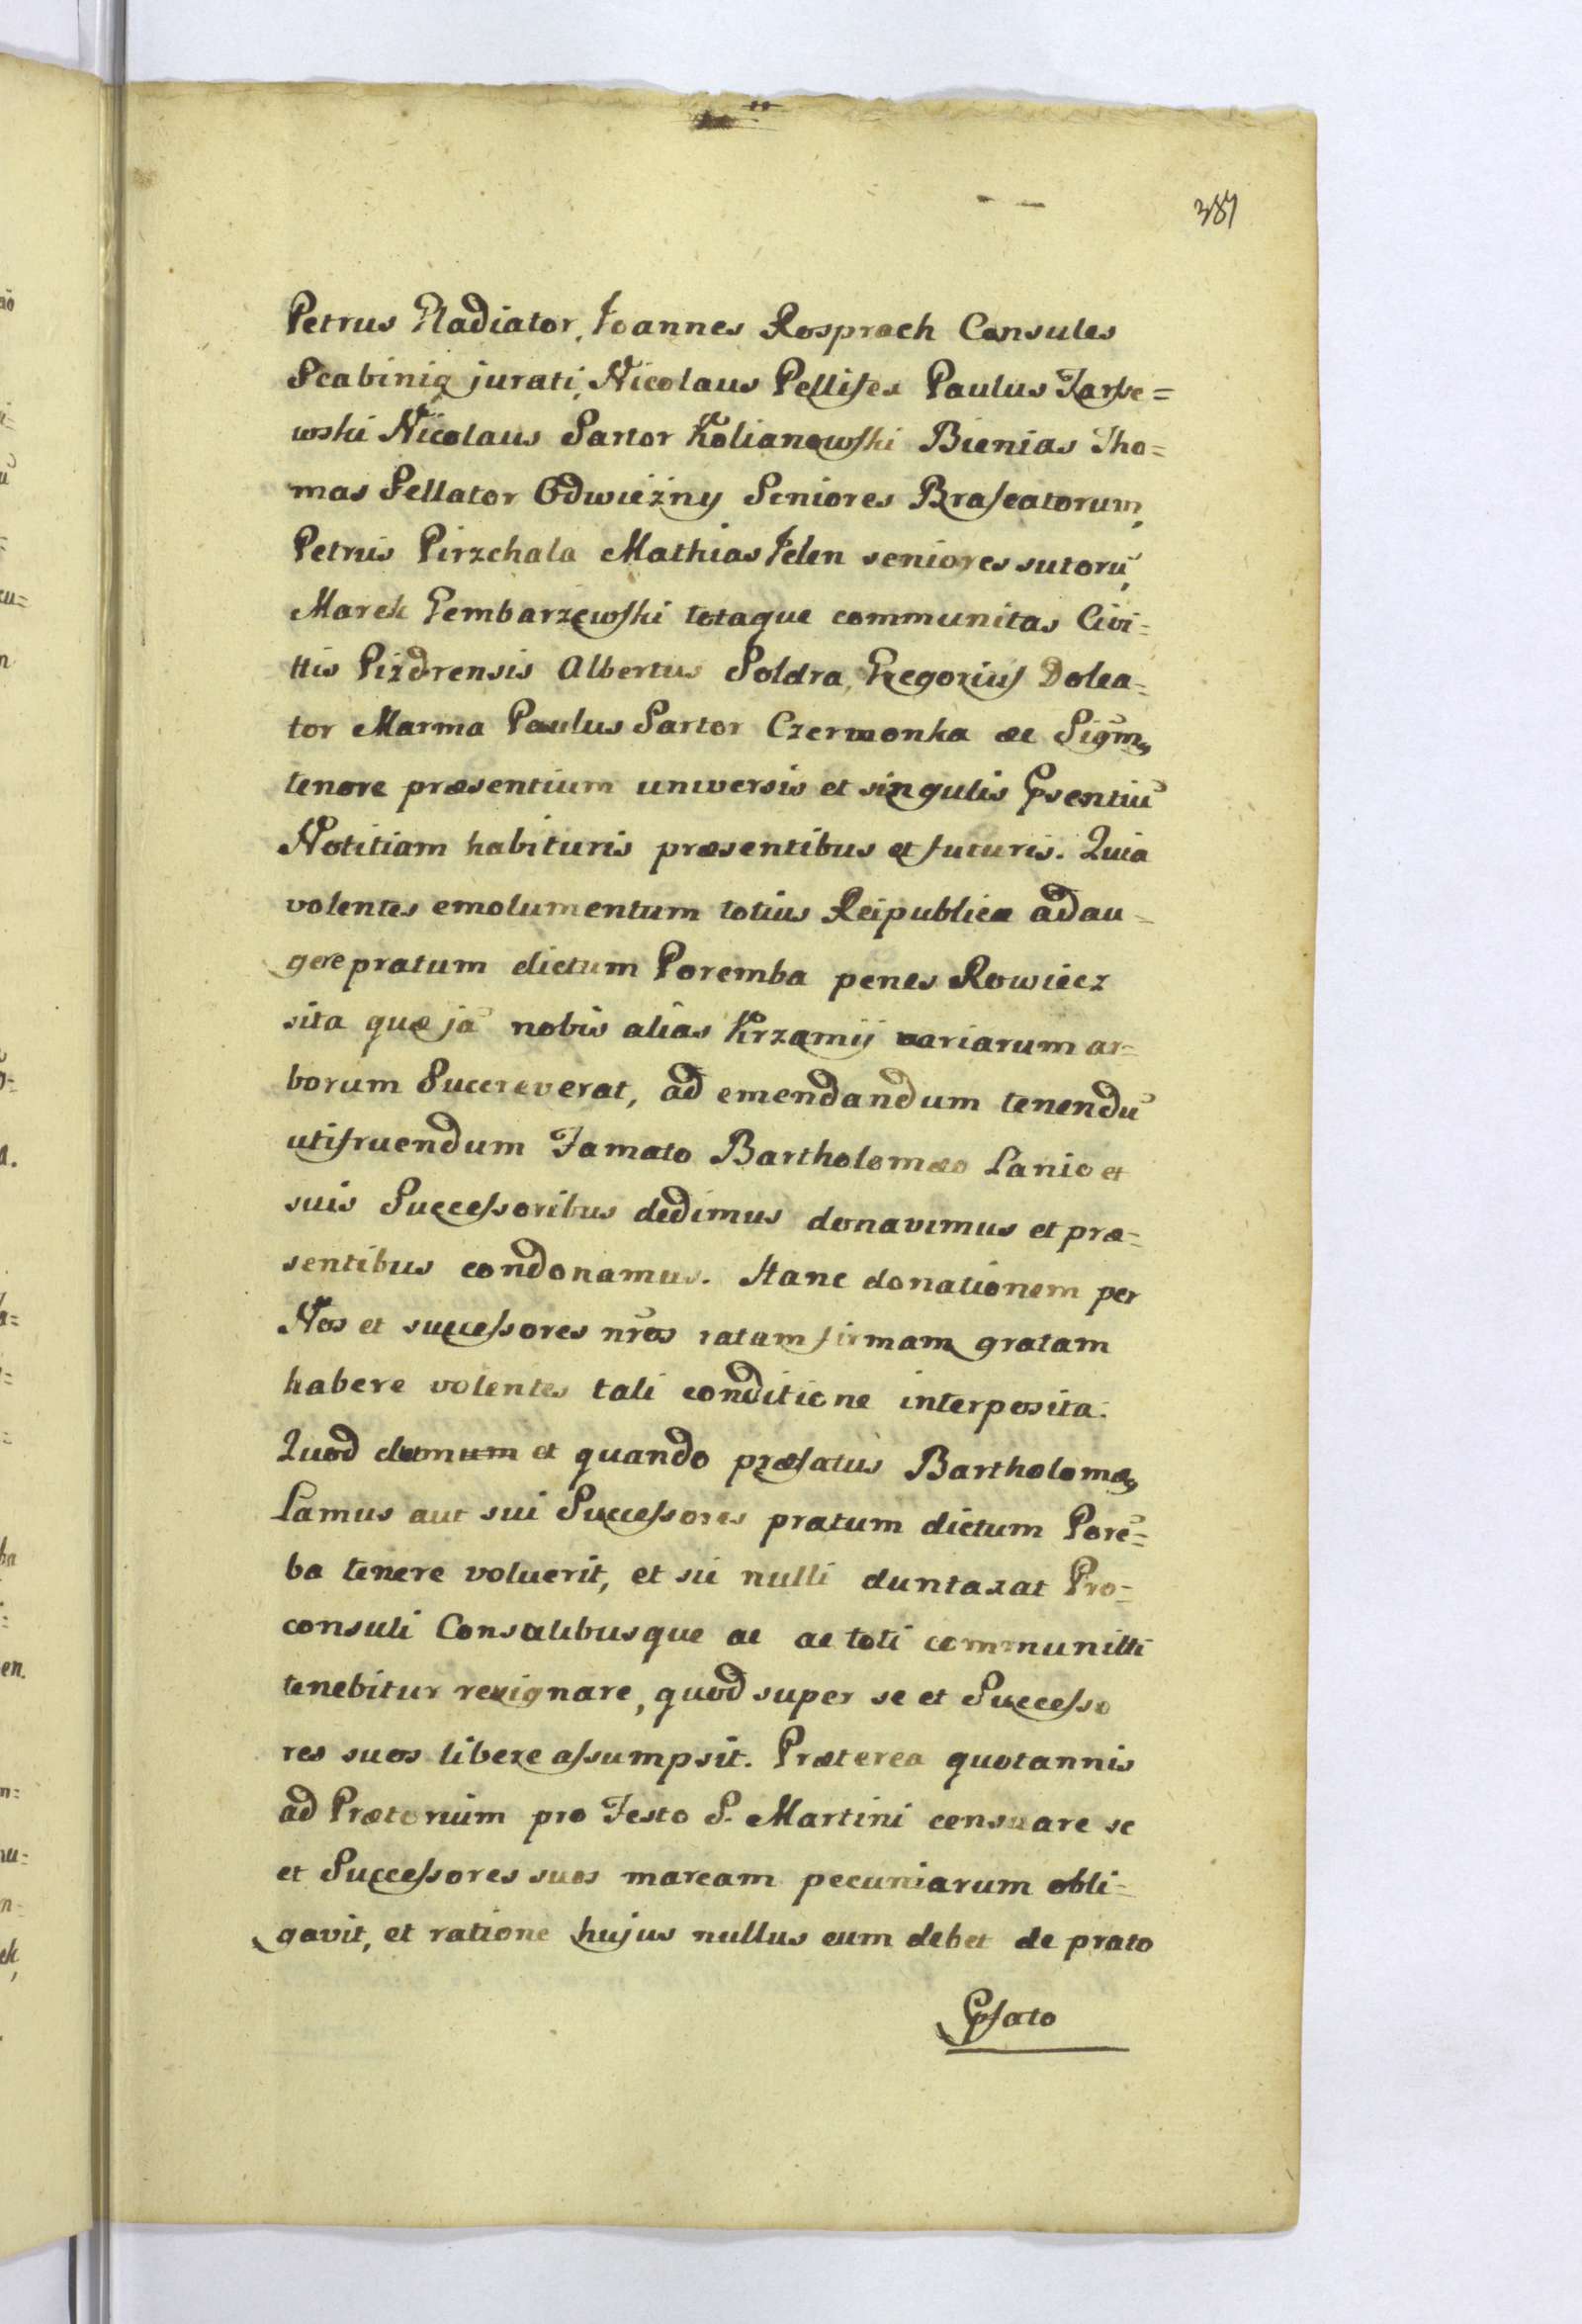 387
Petrus Gladiator, Joannes Rosprach Consules
Scabiniq jurati, Nicolaus Pellifex Paulus Tarse=
wski Nicolaus Sartor Kolianowski Bienias Tho=
mas Sellator Odwiezny Seniores Braseatorum,
Petrus Pirzchala Mathias Jelen seniores sutorū,
Marek Gembarzewski totaque communitas Civi=
ttis Pizdrensis Albertus Soldra, Gregorius Dolea=
tor Marma Paulus Sartor Czermonka ac Sigm
tenore præsentium universis et singulis Psentiū
Notitiam habituris præsentibus et futuris. Quia
volentes emolumentum totius Reipublicæ adau=
gere pratum dictum Poremba penes Rowiecz
sita quæ jā nobis alias Krzamij variarum ar=
borum Succreverat, ad emendandum tenendū
utifruendum Famato Bartholomæo Lanio et
suis Successoribus dedimus donavimus et præ=
sentibus condonamus. Hanc donationem per
Nos et successores nr̄os ratam firmam gratam
habere volentes tali conditione interposita.
Quod et quando præfatus Bartholomæ
Lamus aut sui Successores pratum dictum Porē=
ba tenere voluerit, et sic nulli duntaxat Pro=
consuli Consulibusque ac ac toti communitti
tenebitur resignare, quod super se et Successo
res suos libere assumpsit. Præterea quotannis
ad Prætorium pro Festo S. Martini censuare se
et Successores suos marcam pecuniarum obli=
gavit, et ratione hujus nullus eum debet de prato
Pfato